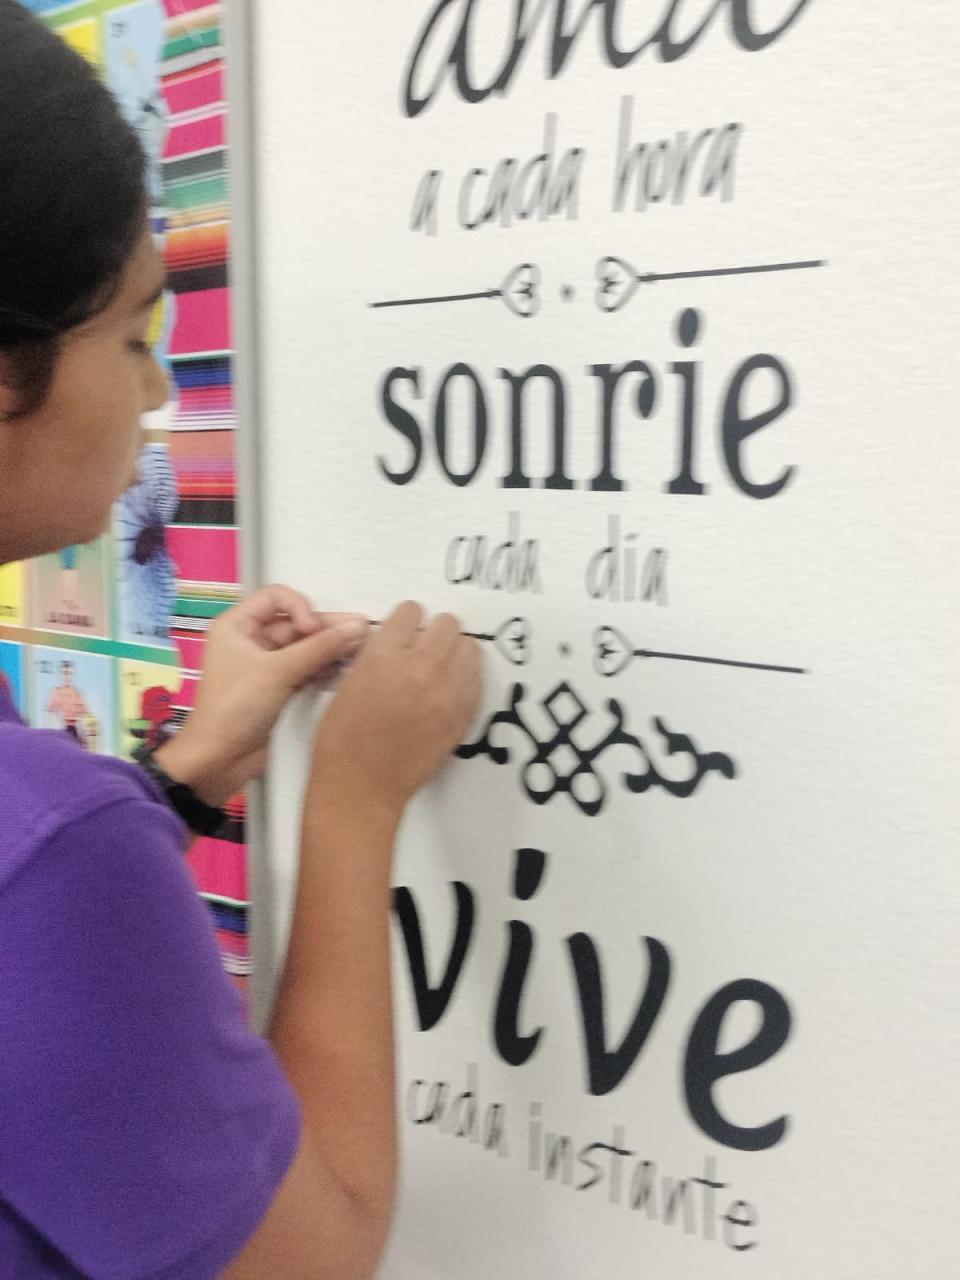 ama
a cada hora
sonrie
cada día
vive
cada instante